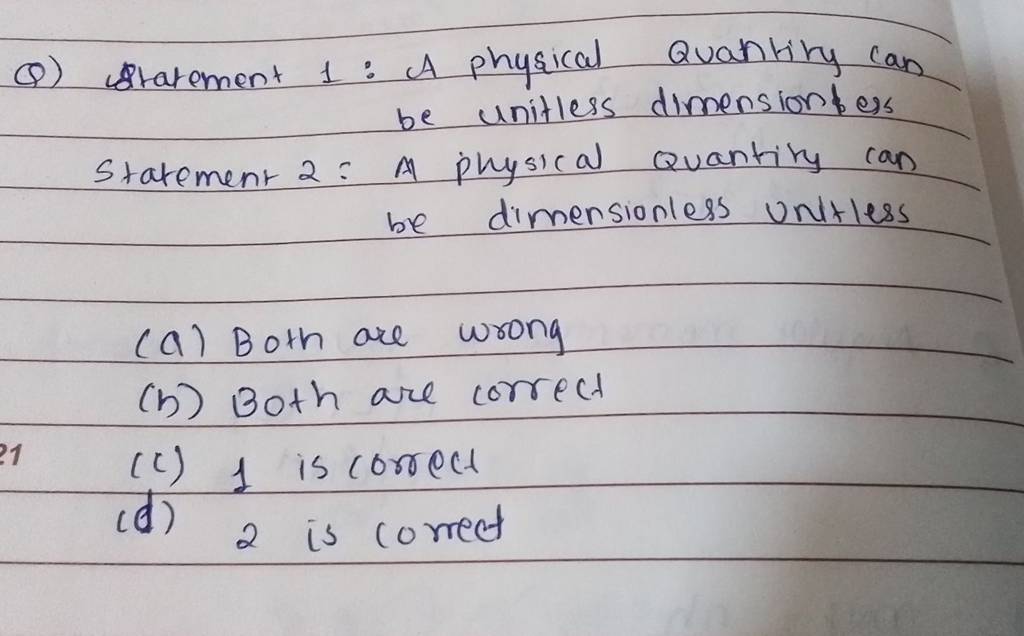 Q) Statement 1 : A physical Quantity can
be unitless dimensionless
Statement 2 : A physical Quantity can
be dimensionless unitless
(a) Both are wrong
(b) Both are correct
21
(c) 1 is correct
(d) 2 is correct